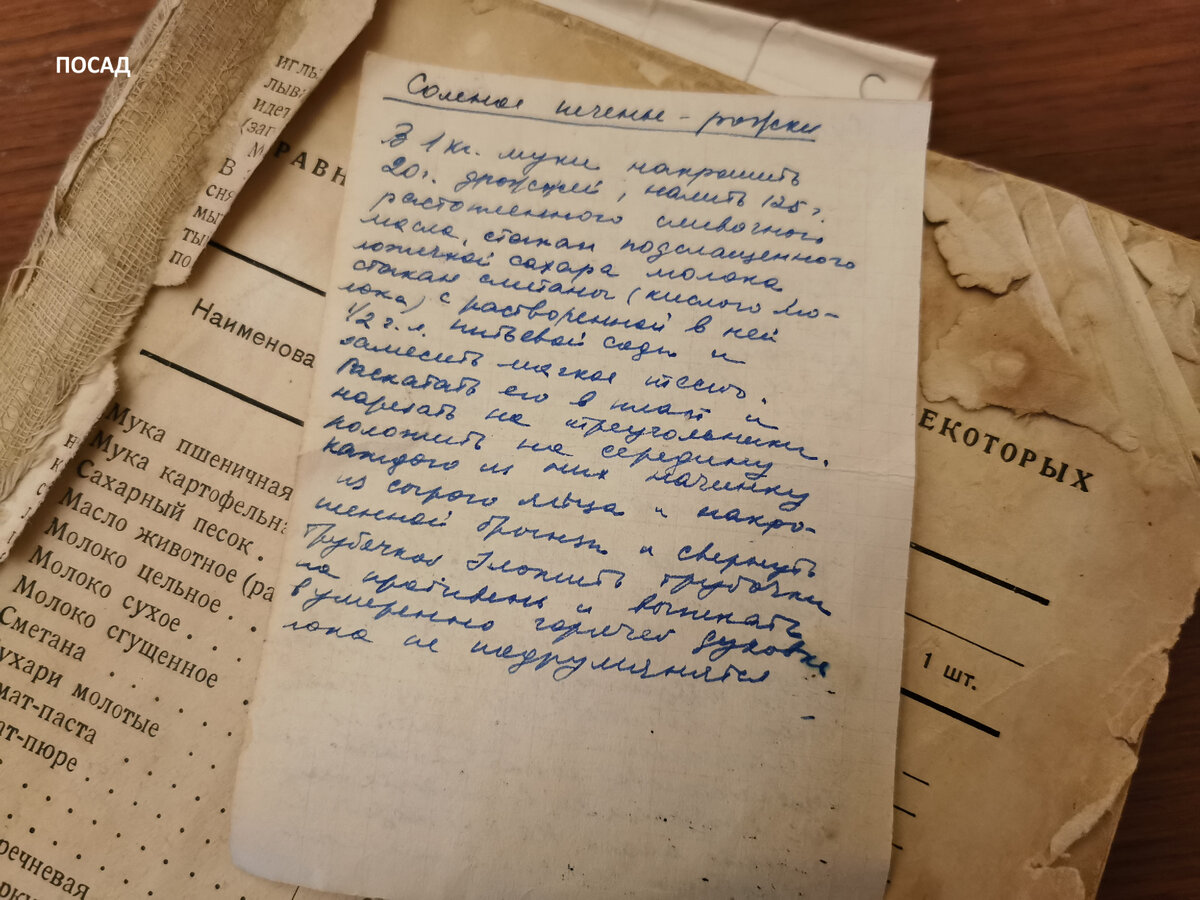 ПОСАД
иглы
лыв
идет
(заг
М
В
сня
мы
ты
по
РАВН
Наименова
Мука пшеничная
Мука картофельна
Сахарный песок .
Масло животное (ра
Молоко цельное .
Молоко сухое .
Молоко сгущенное
Сметана
ухари молотые
мат-паста
ат-пюре .
речневая
Соленое печенье - рожки
В 1 кг. муки накрошить
20 г. дрожжей, налить 125 г.
растопленного сливочного
масла, стакан подслащенного
ложечкой сахара молока
стакан сметаны (кислого мо-
лока) с растворенной в ней
1/2 г. л. питьевой соды и
замесить мягкое тесто.
Раскатать его в пласт и
нарезать на треугольники.
положить на середину
каждого из них начинку
из сырого яйца и накро-
шенной брынзы и свернуть
трубочкой Уложить трубочки
на противень и выпекать
в умеренно горячей духовке
пока не подрумянятся
ЕКОТОРЫХ
1 шт.